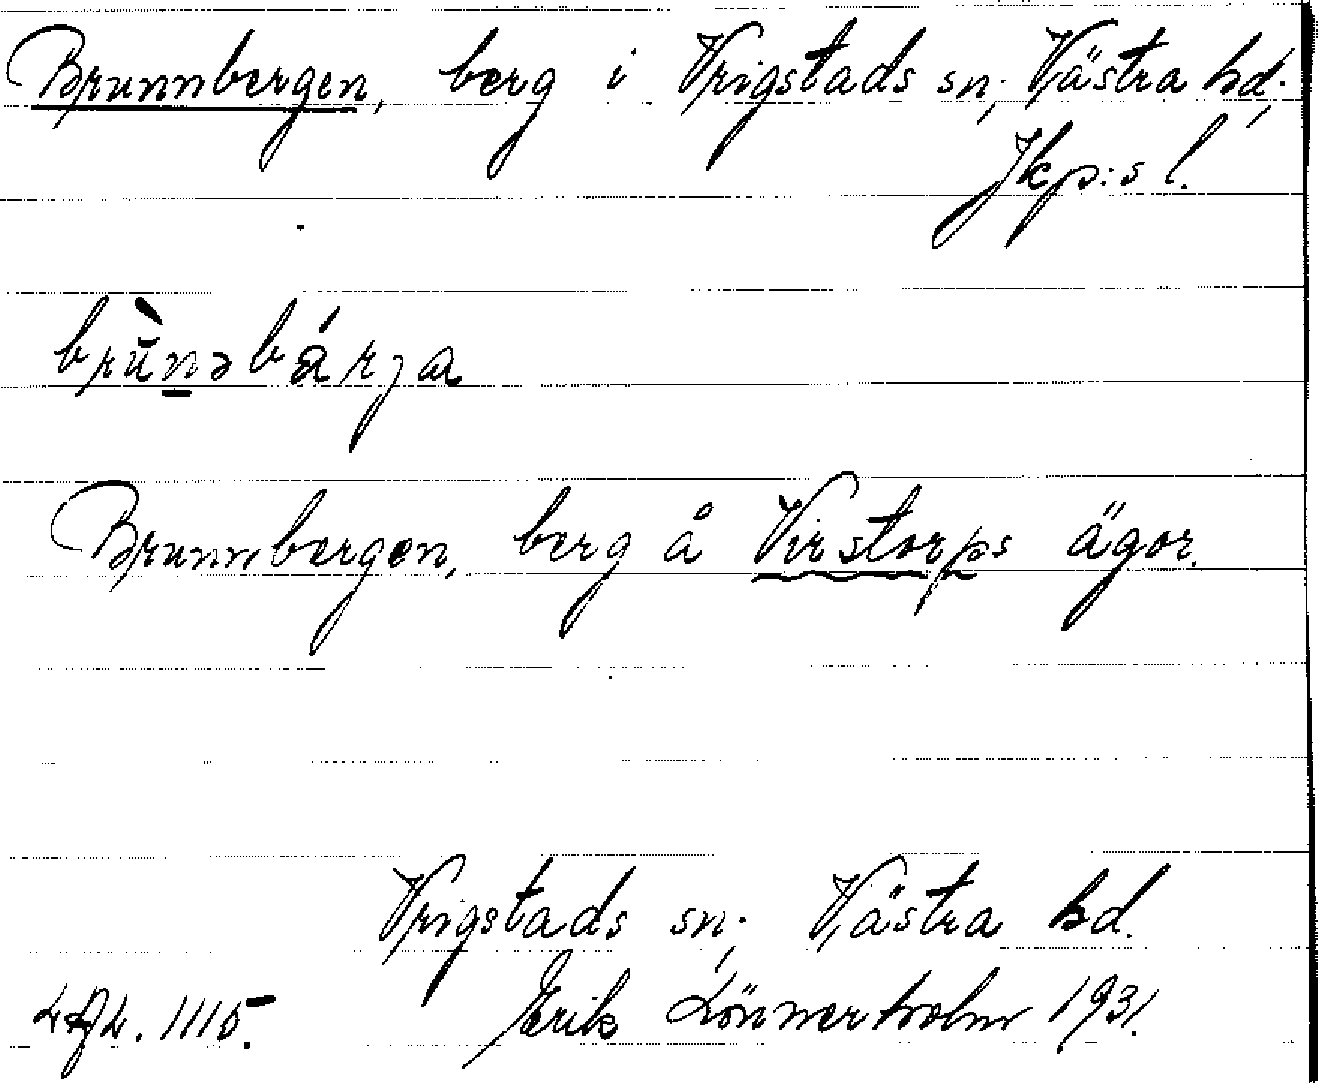 Brunnbergen, berg i Vrigstads sn; Västra hd.
Jkp:s l.
brùnəbárja
Brunnbergen, berg å Virstorps ägor.
Vrigstads sn; Västra hd.
1115. Erik Lönnerholm 1931.